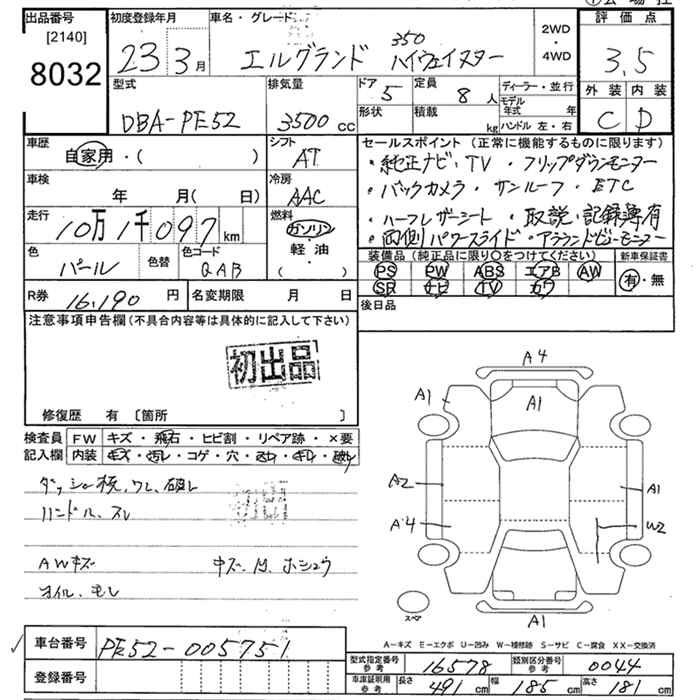 出品番号
[2140]
8032
初度登録年月
23 3月
車名・グレード
エルグランド 350 ハイウェイスター
2WD
・
4WD
評価点
3.5
外装 内装
C D
型式
DBA-PE52
排気量
3500 cc
ドア 5
形状
定員 8 人
積載 kg
ディーラー・並行
モデル年式 年
ハンドル 左・右
車歴
自家用・( )
シフト
AT
車検
年 月( 日)
冷房
AAC
走行
10万1千097 km
燃料
ガソリン
・
軽油
・
( )
色
パール
色替
色コード
QAB
R券 16,190 円
名変期限 月 日
セールスポイント(正常に機能するものに限ります)
・純正ナビ・TV・フリップダウンモニター
・バックカメラ・サンルーフ・ETC
・ハーフレザーシート・取説・記録簿有
・両側パワースライド・アラウンドビューモニター
装備品(純正品に限り○をつけてください)
PS PW ABS エアB AW
SR ナビ TV カワ
新車保証書
有・無
後日品
注意事項申告欄(不具合内容等は具体的に記入して下さい)
初出品
修復歴 有〔箇所 〕
検査員記入欄
FW キズ・飛石・ヒビ割・リペア跡・×要
内装 キズ・汚レ・コゲ・穴・スレ・キレ・破レ
ダッシュ板、ワレ、破レ
ハンドル、スレ
AWキズ
キズ、凹、ホシュウ
オイル、モレ
初出
A4
A1
A1
A2
A1
A4
W2
A1
スペア
A-キズ E-エクボ U-凹み W-補修跡 S-サビ C-腐食 XX-交換済
車台番号 PE52-005751
登録番号
型式指定番号 参考 16578
類別区分番号 参考 0044
車庫証明用 参考 長さ 491 cm 幅 185 cm 高さ 181 cm